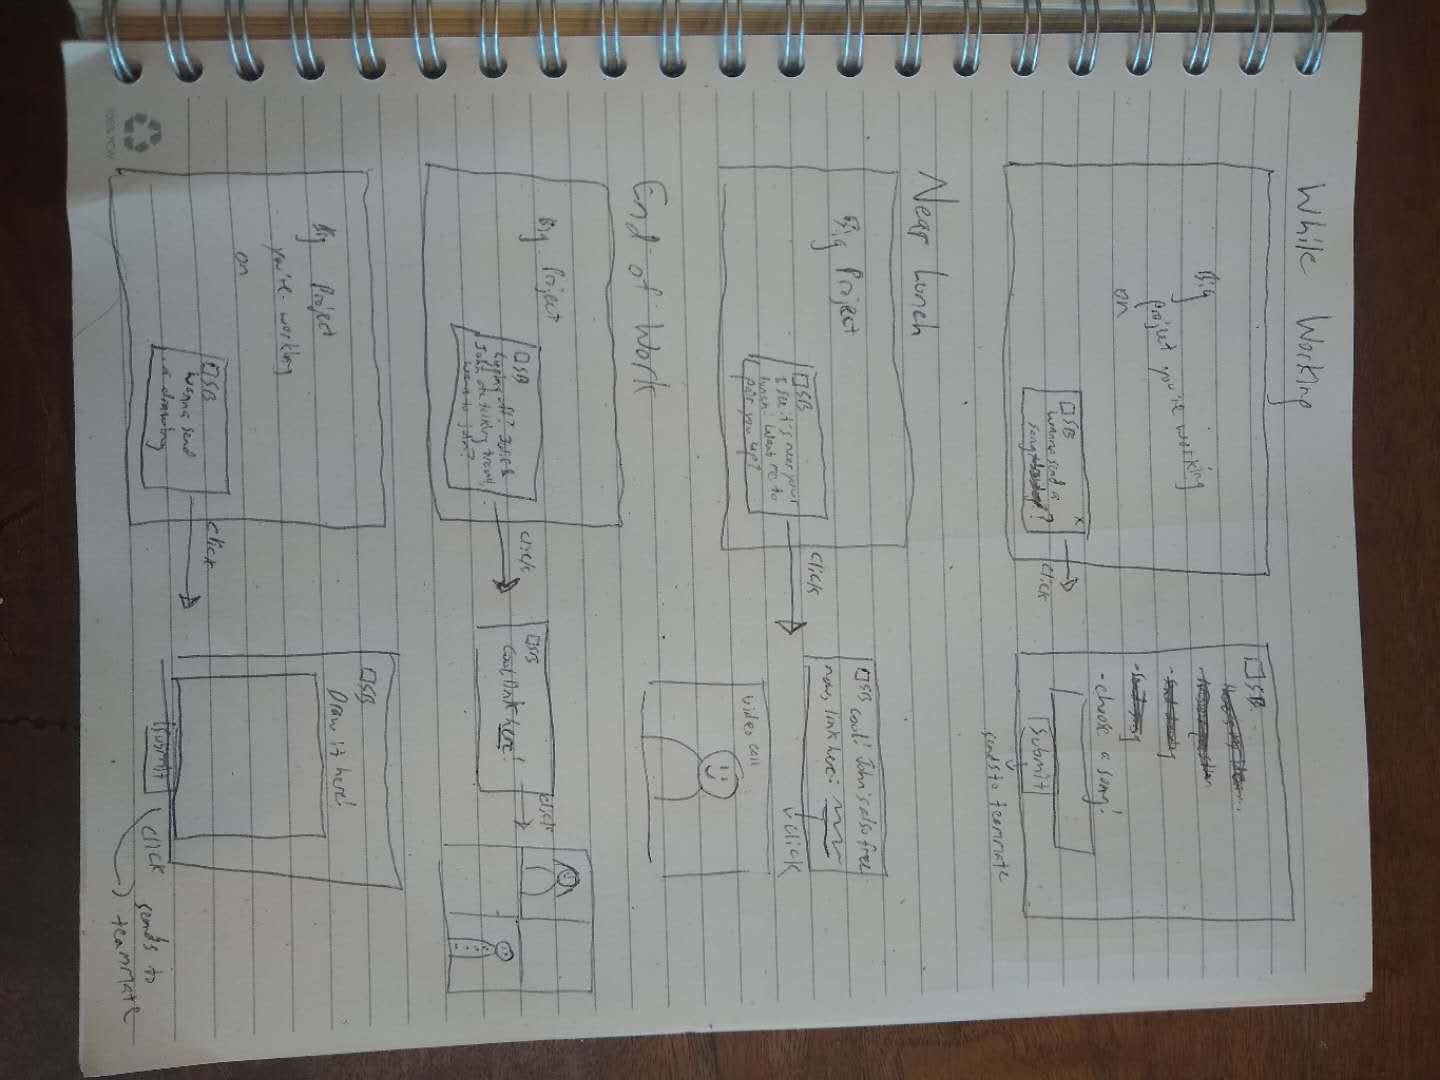 While Working
Big
Project you're working
on
SB x
Wanna send a
song ?
click
SB
-choose a song!
Submit
sends to teammate
Near Lunch
Big Project
SB
I see it's near your
lunch! Want me to
pair you up?
click
SB cool! John's also free
now, link here:
click
video call
End of Work
Big Project
SB
off?
John are talking travel,
want to join?
click
SB
Cool link here!
click
Big Project
you're working
on
SB
Wanna send
a drawing
click
SB
Draw it here!
Submit
click
sends to
teammate
100% PCW